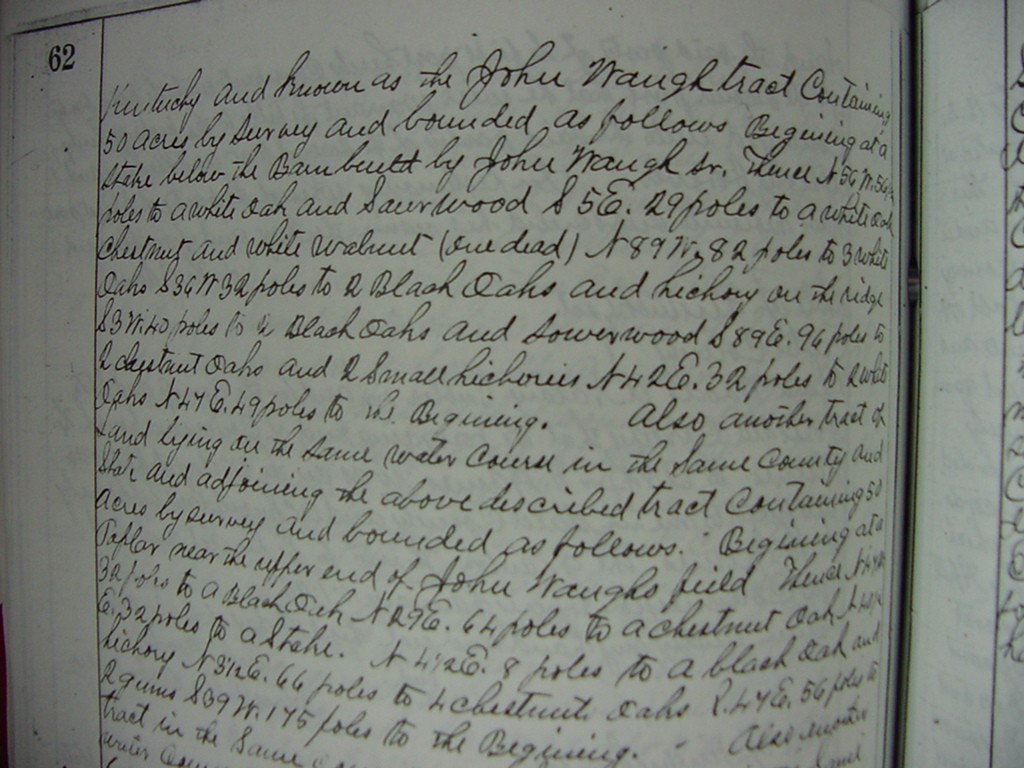 62
Kentucky and known as the John Waugh tract Containing
50 acres by survey and bounded as follows Begining at a
stake below the Barn built by John Waugh sr. Thence N 56 W. 56
poles to a white Oak and Sourwood S 5 E. 29 poles to a white Oak
chestnut and white walnut (one dead) N 89 W. 82 poles to 3 white
Oaks S 36 W 32 poles to 2 Black Oaks and hickory on the ridge
S 3 W. 40 poles to 2 Black Oaks and Sowerwood S 89 E. 96 poles to
2 chestnut Oaks and 2 Small hickories N 42 E. 32 poles to 2 white
Oaks N 47 E. 49 poles to the Begining. Also another tract of
Land lying on the same water Course in the Same County and
State and adjoining the above described tract Containing 50
acres by survey and bounded as follows. Begining at a
Poplar near the upper end of John Waughs field Thence
32 poles to a Black Oak N 29 E. 64 poles to a chestnut Oak
E. 32 poles to a Stake. N 42 E. 8 poles to a black Oak and
hickory N 31/2 E. 66 poles to 4 chestnut Oaks S. 47 E. 56 poles to
2 gums S 39 W. 175 poles to the Begining. Also another
tract in the Same
water